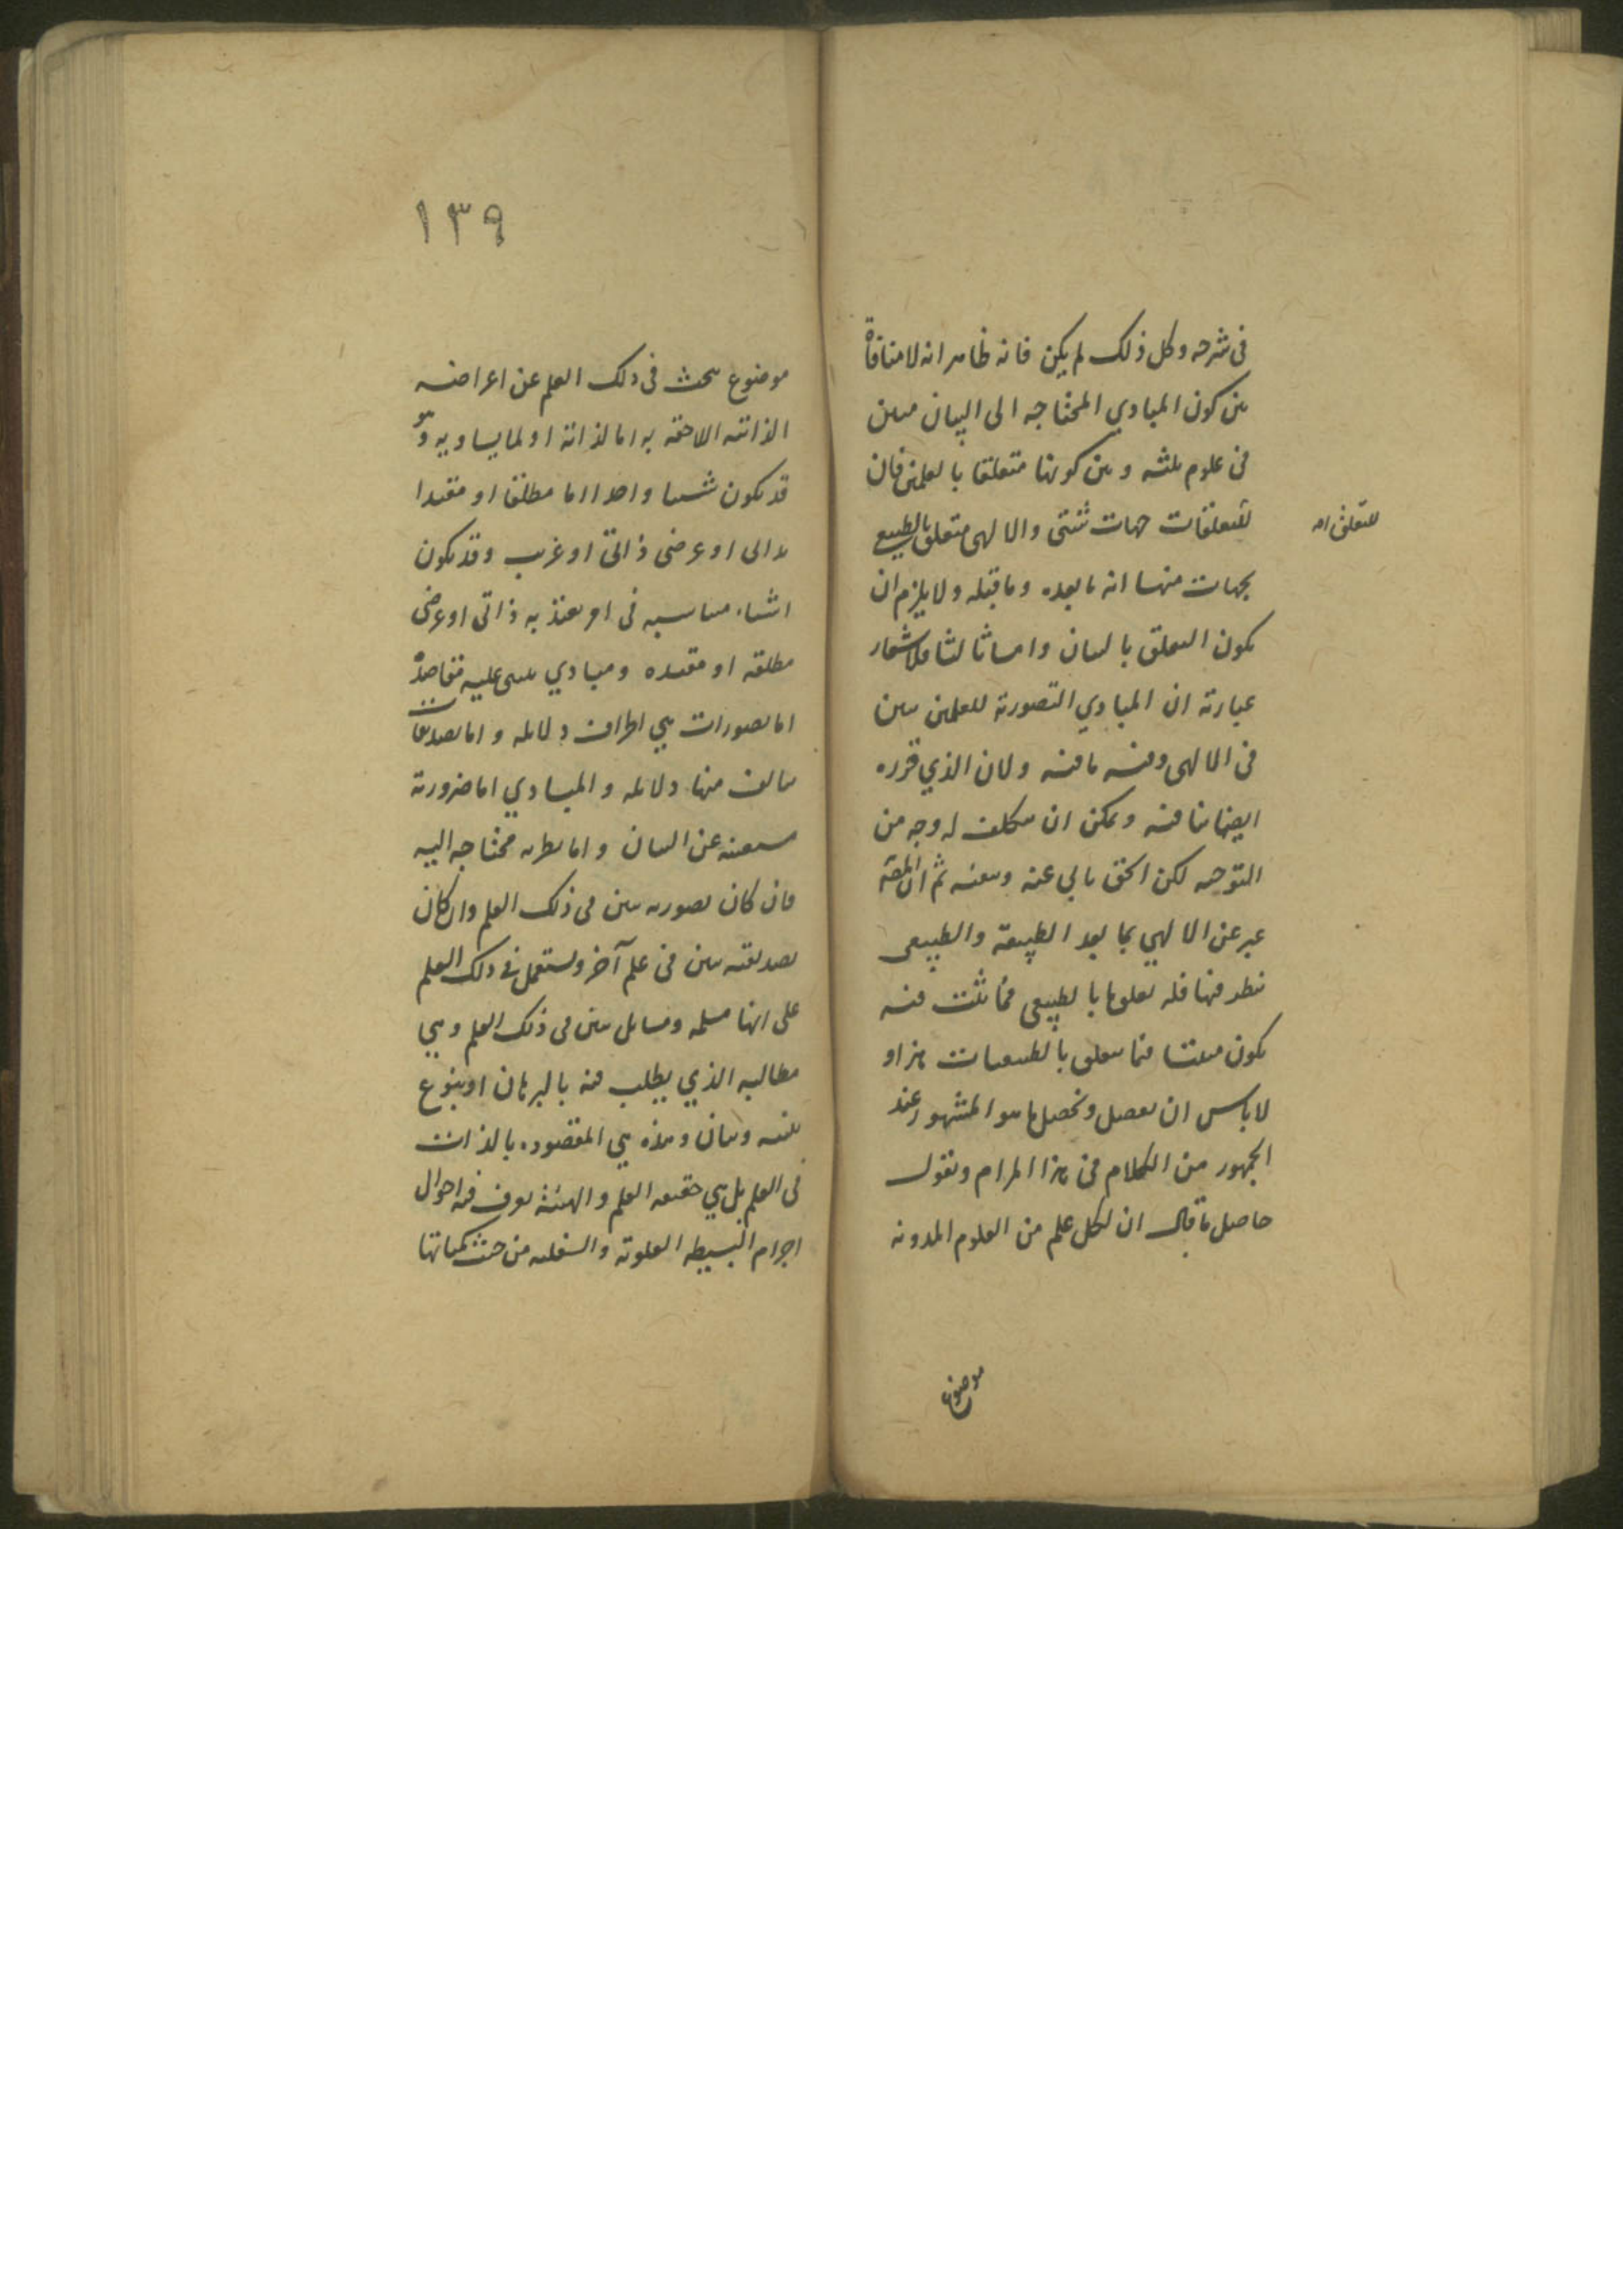 فى شرحه وكل ذلك لم يكن فانه ظاهر انه لا منافاة
بين كون المبادي المحتاجه الى البيان مبين
فى علوم ثلثه وبين كونها متعلقا بالعلمين فان
للتعلقات جهات شتى والالهى متعلق بالطبيعى
للتعلق
بجهات منها انه ما بعده وما قبله ولا يلزم ان
يكون التعلق بالبيان واما ثالثا فلاشعار
عبارته ان المبادي التصورية للعلمين تبين
فى الالهى وفيه ما فيه ولان الذي قرره
ايضا ينافيه ويمكن ان يتكلف له وجه من
التوجيه لكن الحق يابى عنه ثم ان المص
عبر عن الالهي بما بعد الطبيعة والطبيعى
ينظر فيها فله تعلق ما بالطبيعى فما يثبت فيه
يكون مبينا فيما يتعلق بالطبيعيات هذا و
لا باس ان نفصل ونحصل ما هو المشهور عند
الجمهور من الكلام فى هذا المرام ونقول
حاصل ما قال ان لكل علم من العلوم المدونه
موضوع
١٣٩
موضوع يبحث فى ذلك العلم عن اعراضه
الذاتيه اللاحقه به اما لذاته او لما يساويه وهو
قد يكون شيئا واحدا اما مطلقا او مقيدا
بذاتى او عرضى ذاتى او غريب وقد يكون
اشياء متناسبه فى امر يعتد به ذاتى او عرضى
مطلقه او مقيده ومبادي يبتنى عليه مقاصده
اما تصورات هي اطراف دلائله واما تصديقات
يتالف منها دلائله والمبادي اما ضرورية
مستغنيه عن البيان واما نظريه محتاجه اليه
فان كان تصوريه تبين فى ذلك العلم وان كان
تصديقيه تبين فى علم آخر وتستعمل فى ذلك العلم
على انها مسلمه ومسايل تبين فى ذلك العلم وهي
مطالبه الذي يطلب فيه بالبرهان او بنوع
تنبيه وبيان وهذه هي المقصوده بالذات
فى العلم بل هي حقيقه العلم والهيئة يعرف فيه احوال
اجرام البسيطه العلوية والسفليه من حيث كمياتها